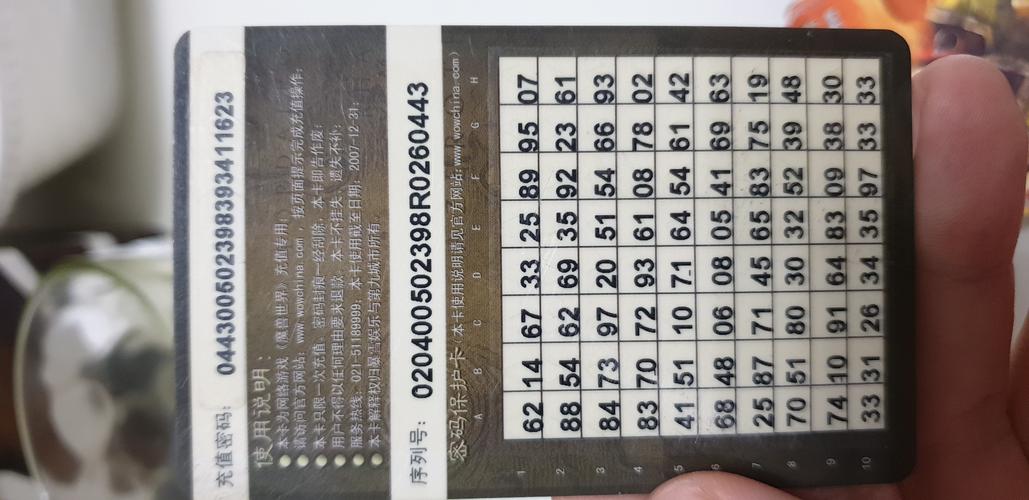 充值密码: 044300502398393411623
使用说明:
本卡为网络游戏《魔兽世界》充值专用;
请访问官方网站: www.wowchina.com ,按页面提示完成充值操作;
本卡只限一次充值,密码封痕一经刮除,本卡即告作废;
用户不得以任何理由要求退款,本卡不挂失,遗失不补;
服务热线: 021-51189999, 本卡使用截至日期: 2007-12-31;
本卡解释权归暴雪娱乐与第九城市所有
序列号: 020400502398R0260443
密码保护卡(本卡使用说明请见官方网站:www.wowchina.com)
A B C D E F G H
1 62 14 67 33 25 89 95 07
2 88 54 62 69 35 92 23 61
3 84 73 97 20 51 54 66 93
4 83 70 72 93 61 08 78 02
5 41 51 10 71 64 54 61 42
6 68 48 06 08 05 41 69 63
7 25 87 71 45 65 83 75 19
8 70 51 80 30 32 52 39 48
9 74 10 91 64 83 09 38 30
10 33 31 26 34 35 97 33 33